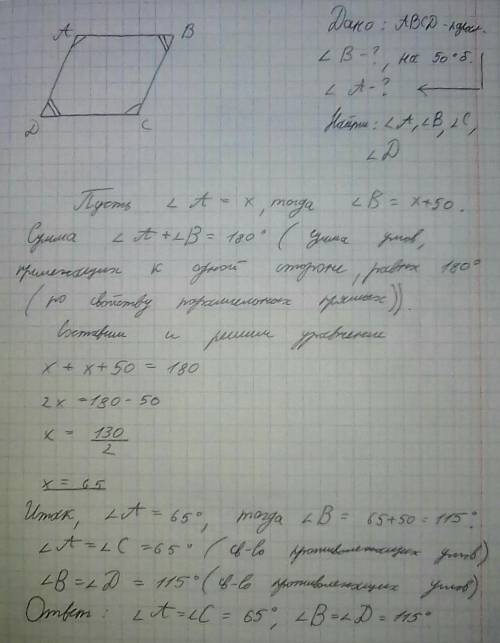 A B
D C
Дано: ABCD - паралл.
∠B - ?, на 50° б.
∠A - ?
Найти: ∠A, ∠B, ∠C,
∠D
Пусть ∠A = x, тогда ∠B = x+50.
Сумма ∠A+∠B = 180° (сумма углов,
прилежащих к одной стороне, равна 180°
(по свойству параллельных прямых)).
Составим и решим уравнение
x + x + 50 = 180
2x = 180 - 50
x = 130/2
x = 65
Итак, ∠A = 65°, тогда ∠B = 65+50 = 115°.
∠A = ∠C = 65° (св-во противолежащих углов)
∠B = ∠D = 115° (св-во противолежащих углов)
Ответ: ∠A = ∠C = 65°, ∠B = ∠D = 115°